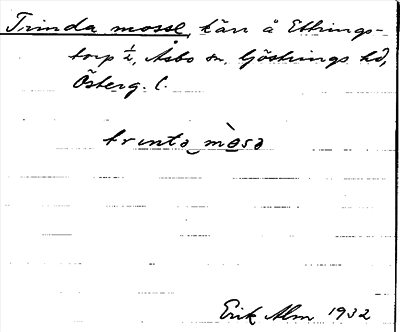 Trinda mosse, kärr å Ettrings-
torp ½, Åsbo sn, Göstrings hd,
Österg. l.
trinta mòsa
Erik Alm 1932